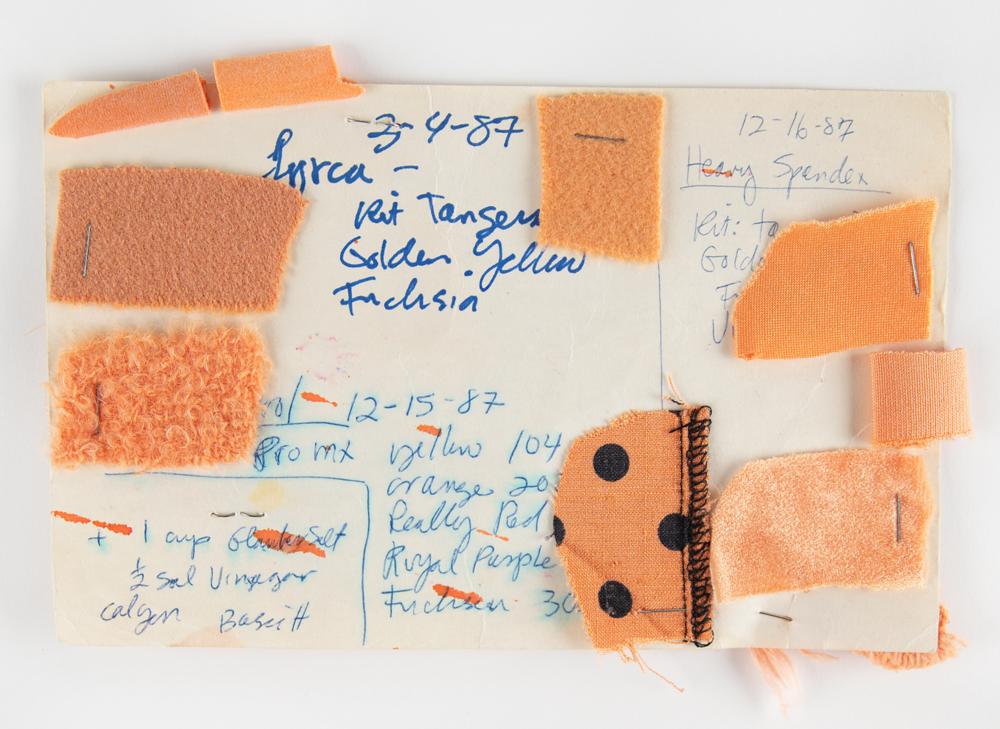 3-4-87
Lyrca -
Rit Tangerı
Golden Yellow
Fuchsia
12-16-87
Heavy Spendex
Rit: ta
Gold
F
12-15-87
Pro mx yellow 104
orange 20
Really Red
Royal Purple
Fuchsia 30
+ 1 cup Glauber Salt
½ sal Vinegar
calgon Basic H